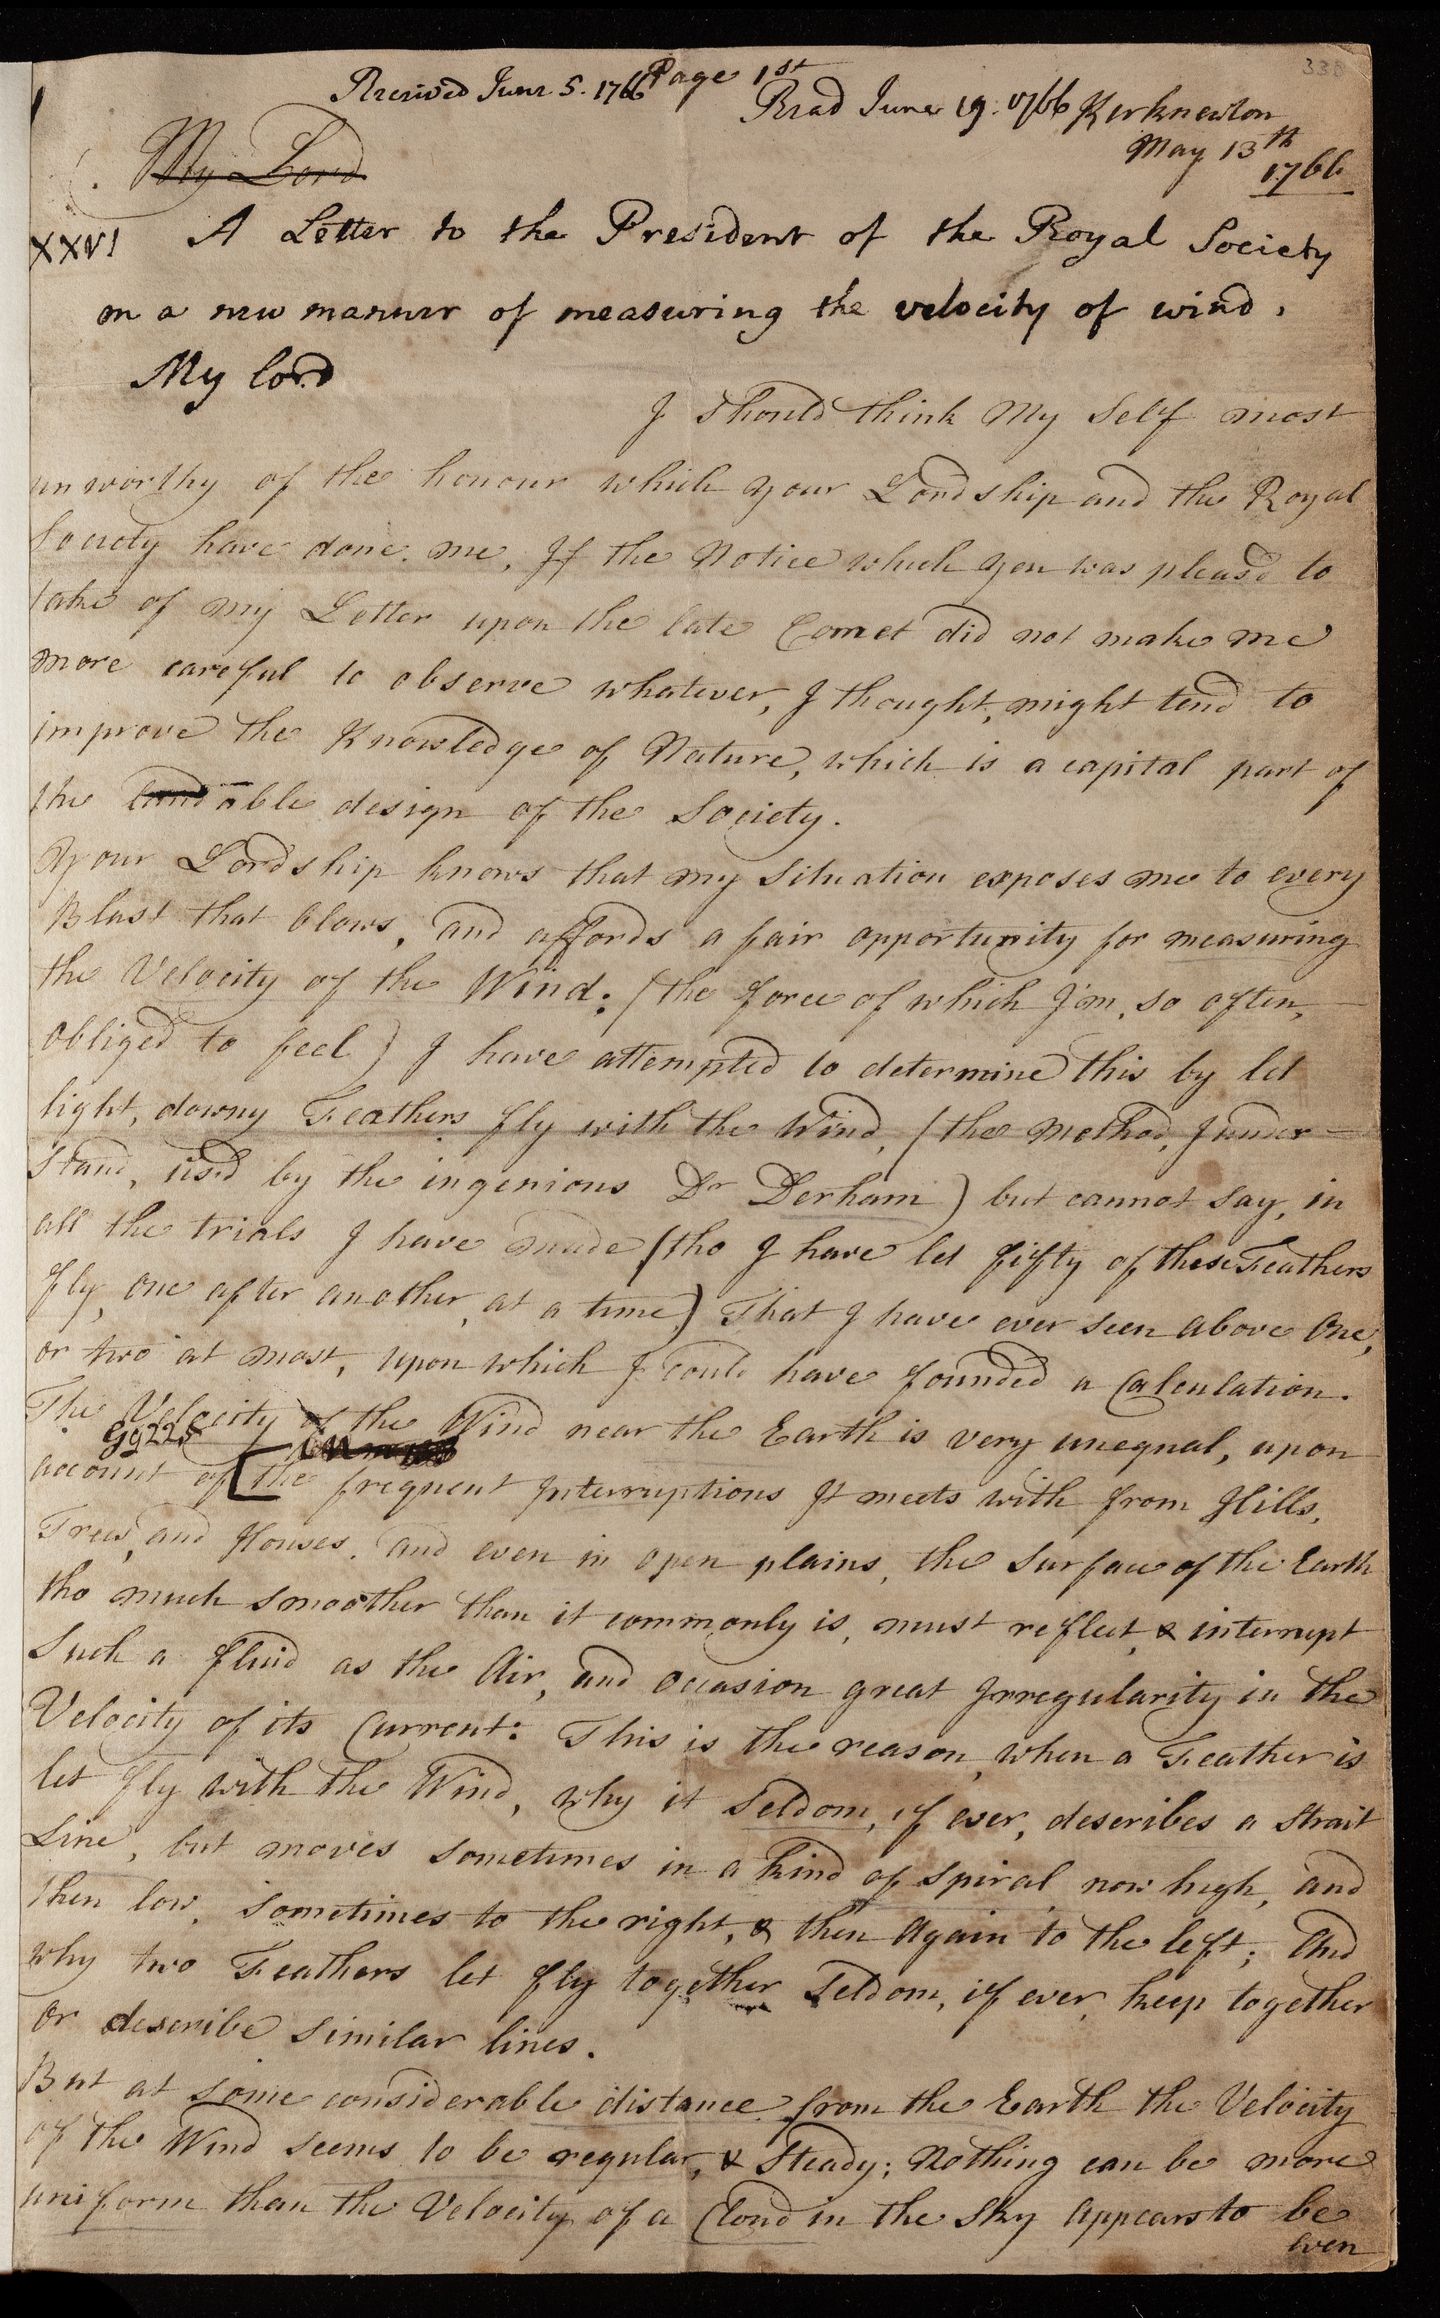 338
Received June 5. 1766 Page 1st
Read June 19. 1766 Kirknewton
May 13th
1766
My Lord
XXVI A Letter to the President of the Royal Society
on a new manner of measuring the velocity of wind.
My lord
I should think My Self most
unworthy of the honour which your Lordship and the Royal
Society have done me, If the Notice which you was pleas'd to
take of my Letter upon the late Comet did not make me
more careful to observe whatever, I thought, might tend to
improve the Knowledge of Nature, which is a capital part of
the laudable design of the Society.
Your Lordship knows that my Situation exposes me to every
Blast that blows, and affords a fair opportunity for measuring
the Velocity of the Wind: (the force of which I'm, so often,
obliged to feel) I have attempted to determine this by let
light, downy Feathers fly with the Wind, (the Method, I under-
stand, us'd by the ingenious Dr Derham) but cannot say, in
all the trials I have made (tho I have let fifty of these Feathers
fly, one after another, at a time) That I have ever seen above One,
or two at most, upon which I could have founded a Calculation.
The Velocity of the Wind near the Earth is very unequal, upon
Gg 225
account of [the frequent Interruptions It meets with from Hills,
Trees, and Houses, and even in open plains, the Surface of the Earth
tho much smoother than it commonly is, must reflect, & interrupt
Such a fluid as the Air, and occasion great Irregularity in the
Velocity of its Current: This is the reason, when a Feather is
let fly with the Wind, why it seldom, if ever, describes a strait
Line, but moves sometimes in a kind of spiral, now high, and
then low, sometimes to the right, & then Again to the left; And
why two Feathers let fly together seldom, if ever, keep together
or describe similar lines.
But at some considerable distance from the Earth the Velocity
of the Wind seems to be regular, & Steady; Nothing can be more
uniform than the Velocity of a Cloud in the Sky Appears to be
even